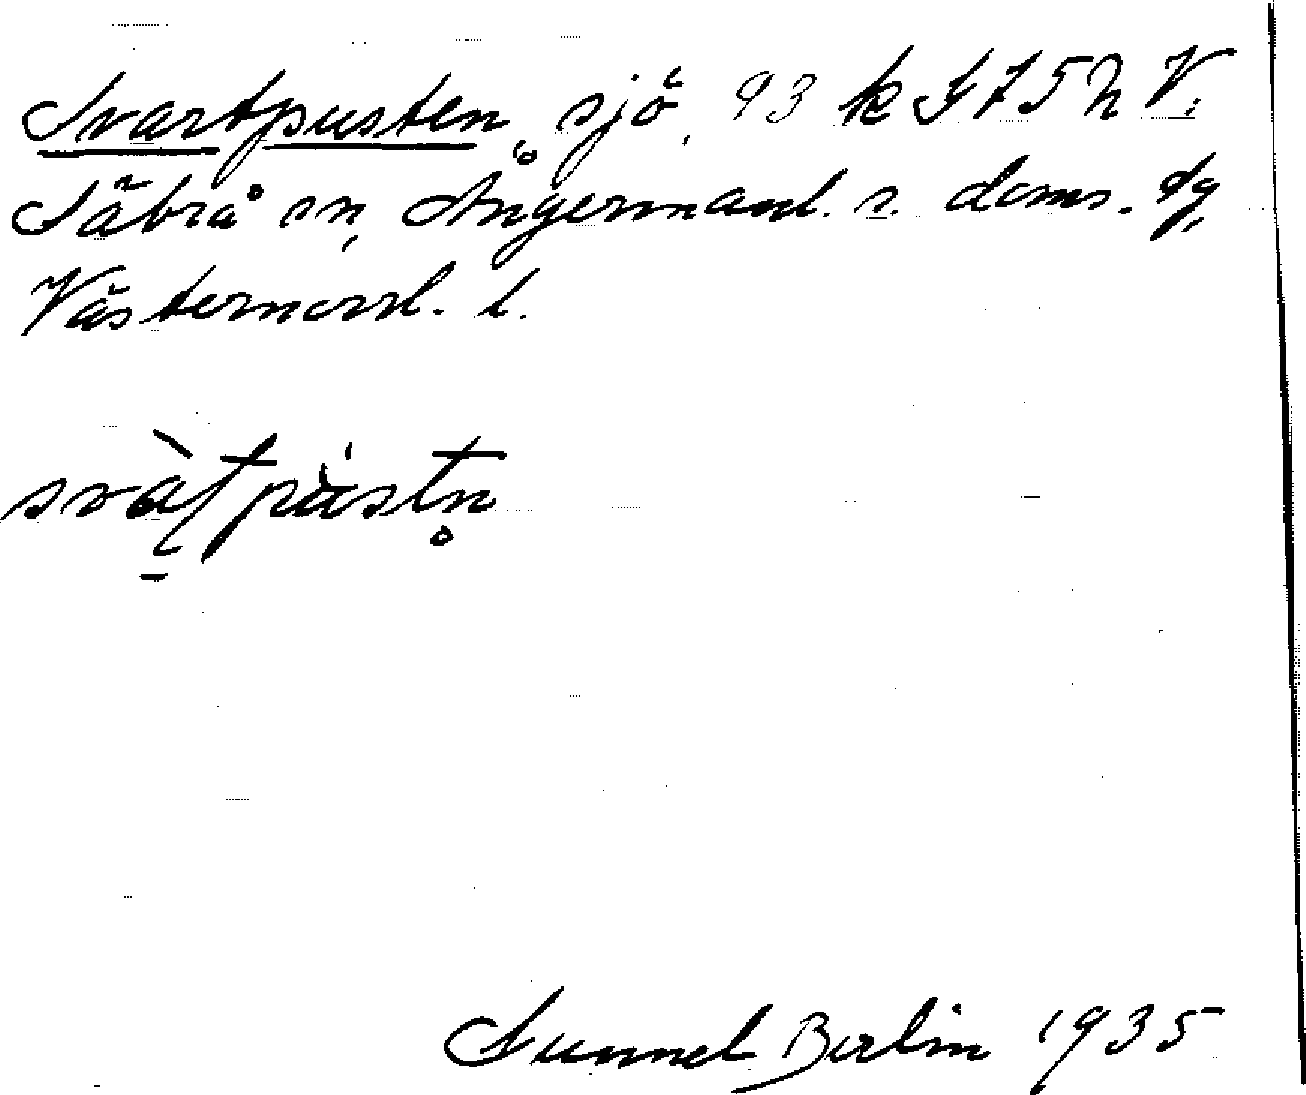 Svartpusten, sjö, 93 k I 7 5 h V.
Säbrå sn, Ångermanl. s. doms. dg,
Västernorrl. l.
svàtpùstn̥
Gunnel Berlin 1935